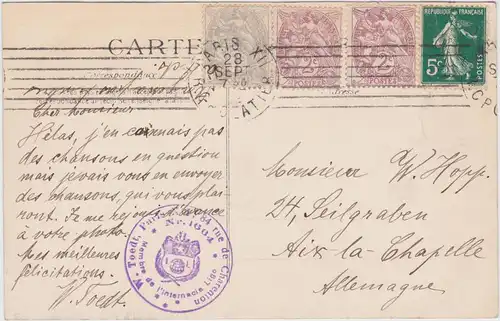 CARTE
PARIS XII
28
SEPT
RÉPUBLIQUE FRANÇAISE
2c 2c
POSTES POSTES
5c
POSTES
Correspondance
Adresse
Cher Monsieur.
Hélas, j'en connais pas
des chansons en question
mais je vais vous en envoyer
des chansons, qui vous plai
ront. Je me rejouis d'avance
à votre photo.
Mes meilleures
félicitations.
W. Toedt.
Monsieur W. Hopp.
24, Seilgraben
Aix-la-Chapelle
Allemagne
W. Toedt, Paris 84 rue de Charenton
Nr. 1604
Membre de l'Internacia Ligo